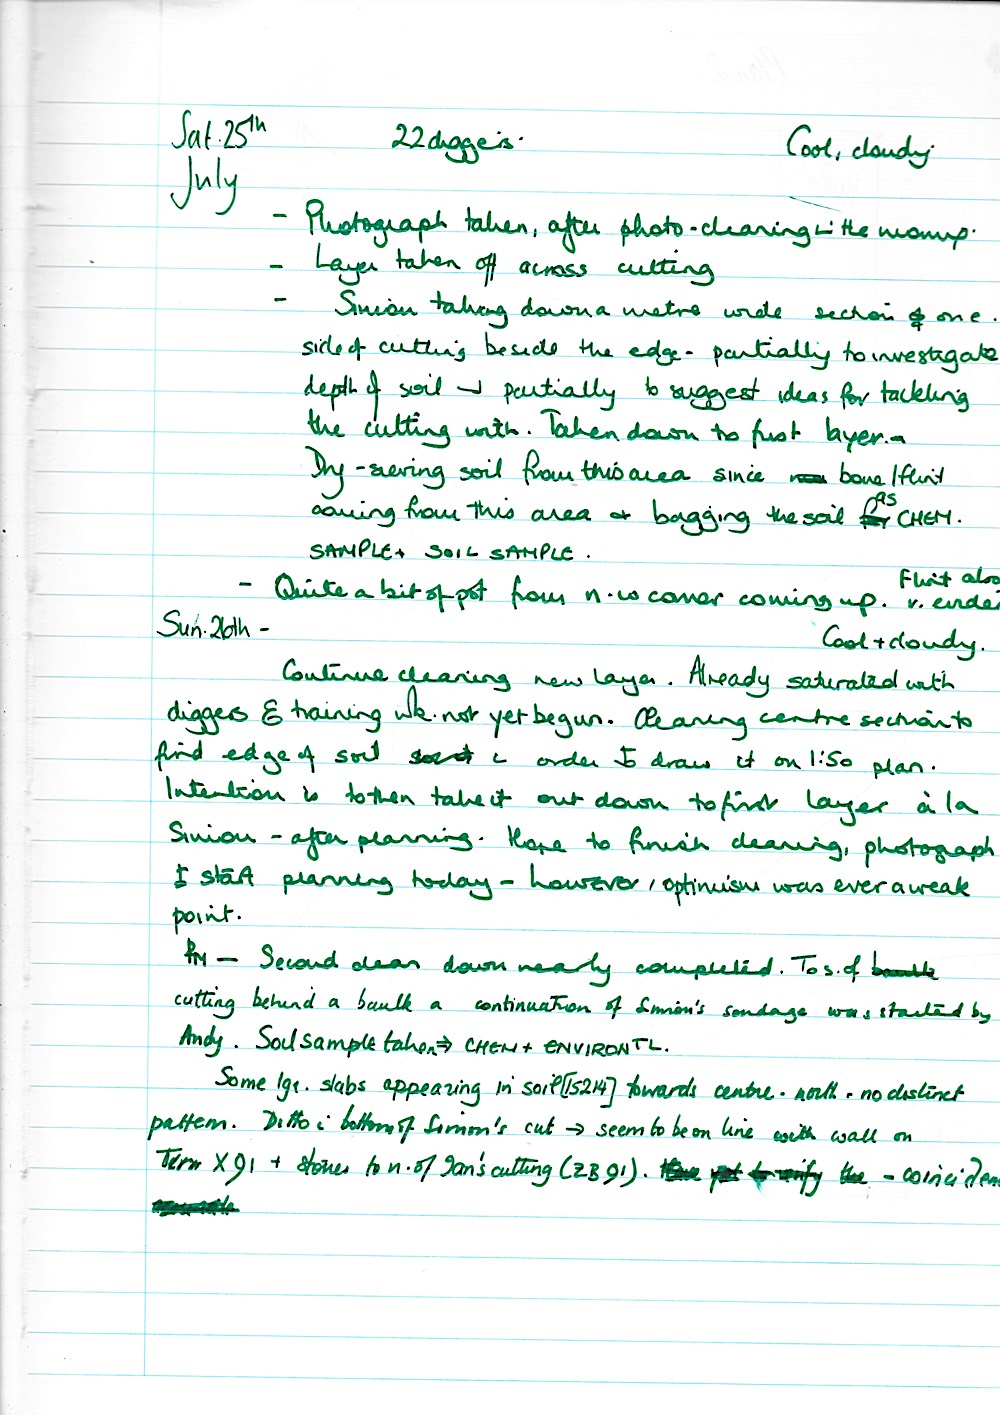 Sat. 25th 22 diggers. Cool, cloudy.
July
- Photograph taken, after photo-cleaning in the morning.
- Layer taken off across cutting
- Simon taking down a metre wide section of one.
side of cutting beside the edge - partially to investigate
depth of soil → partially to suggest ideas for tackling
the cutting with. Taken down to first layer. -
Dry-sieving soil from this area since bone/flint
coming from this area + bagging the soil as CHEM.
SAMPLE + SOIL SAMPLE.
Flint also
- Quite a bit of pot from n.w corner coming up. v. eviden
Sun. 26th - Cool + cloudy.
Continue cleaning new layer. Already saturated with
diggers & training wk. not yet begun. Cleaning centre section to
find edge of soil in order to draw it on 1:50 plan.
Intention is to then take it out down to first layer à la
Simon - after planning. Hope to finish cleaning, photograph
& start planning today - however, optimism was ever a weak
point.
PM - Second clean down nearly completed. To s. of baulk
cutting behind a baulk a continuation of Simon's sondage was started by
Andy. Soil sample taken ⇒ CHEM + ENVIRONTL.
Some lge. slabs appearing in soil [15214] towards centre - north - no distinct
pattern. Ditto in bottom of Simon's cut → seem to be on line with wall on
Term X 91 + stones to n. of Ian's cutting (ZB 91). - coinciden